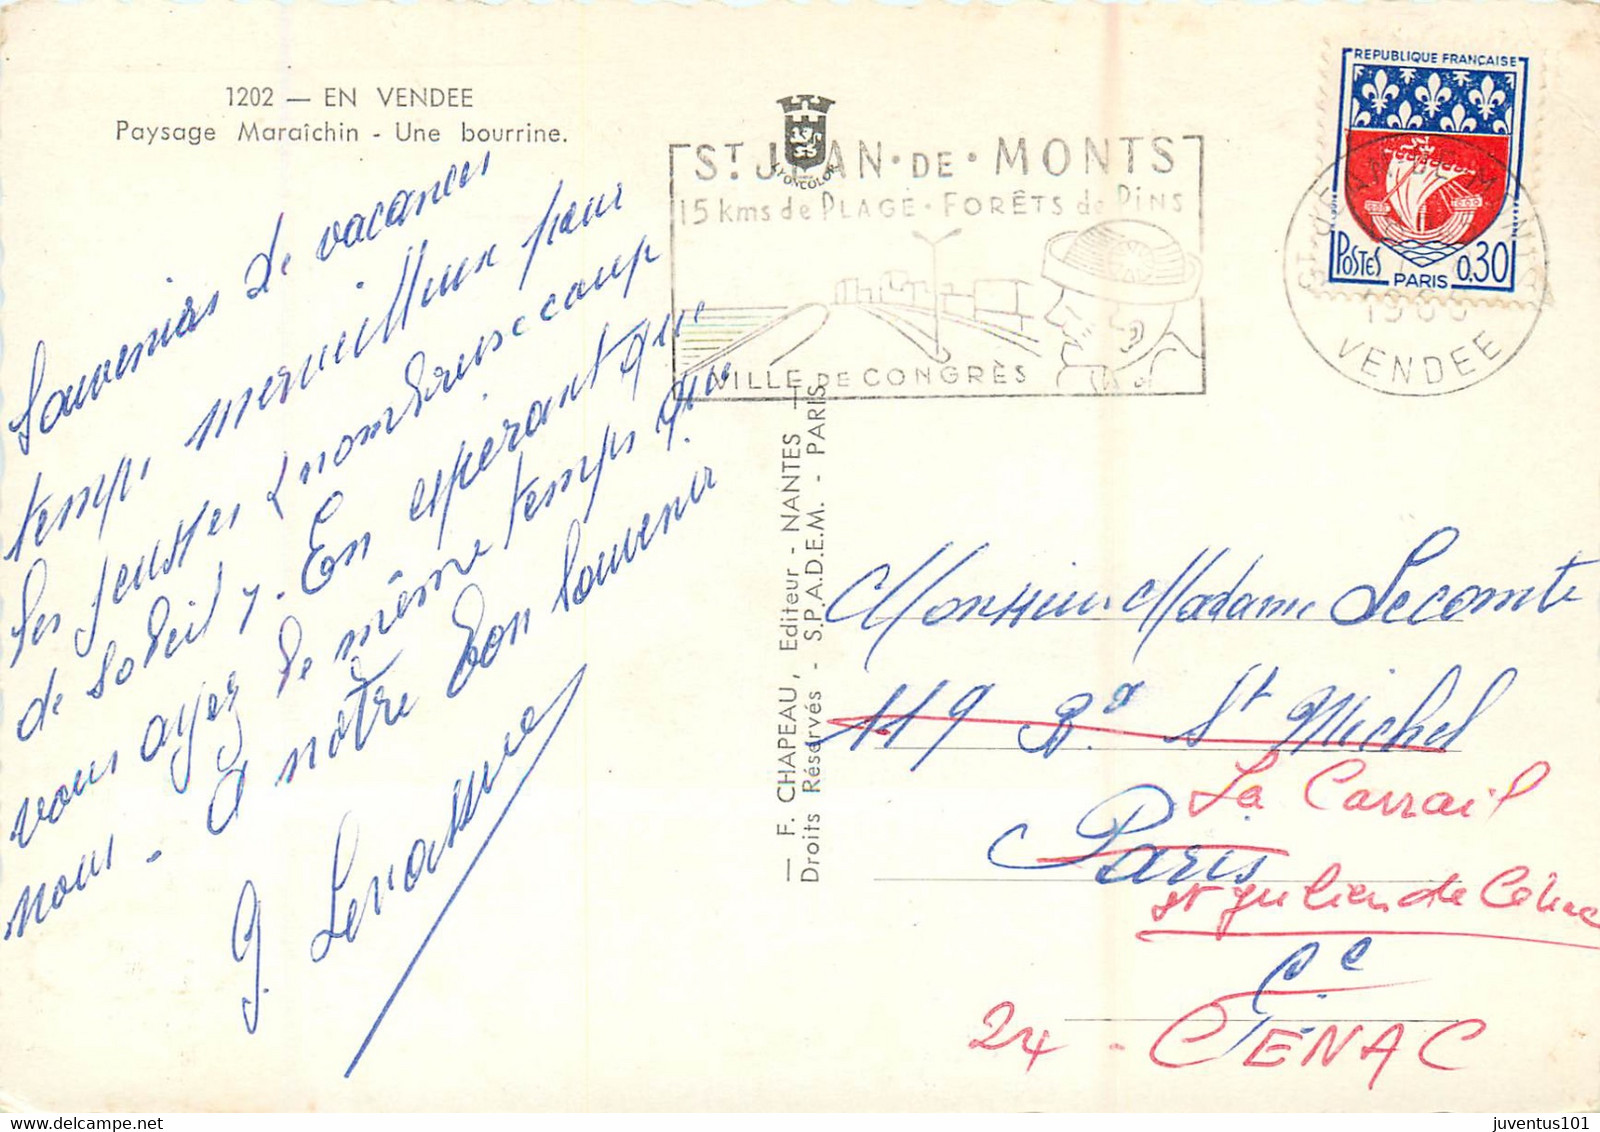 1202 — EN VENDEE
Paysage Maraîchin - Une bourrine.
Souvenirs de vacances
temps merveilleux pour
les jeunes & nombreuse coup
de soleil. En espérant que
vous ayez le même temps que
nous. A notre bon souvenir
G.
LYONCOLOR
ST JEAN • DE • MONTS
15 kms de PLAGE • FORÊTS de PINS
VILLE DE CONGRÈS
REPUBLIQUE FRANÇAISE
POSTES PARIS 0,30
ST-JEAN-DE-MONTS
VENDEE
— F. CHAPEAU, Editeur - NANTES —
Droits Réservés - S.P.A.D.E.M. - PARIS
Monsieur Madame Lecomte
119 Bd St Michel
La Carrail
Paris
St Julien de Cénac
24 - CENAC
juventus101